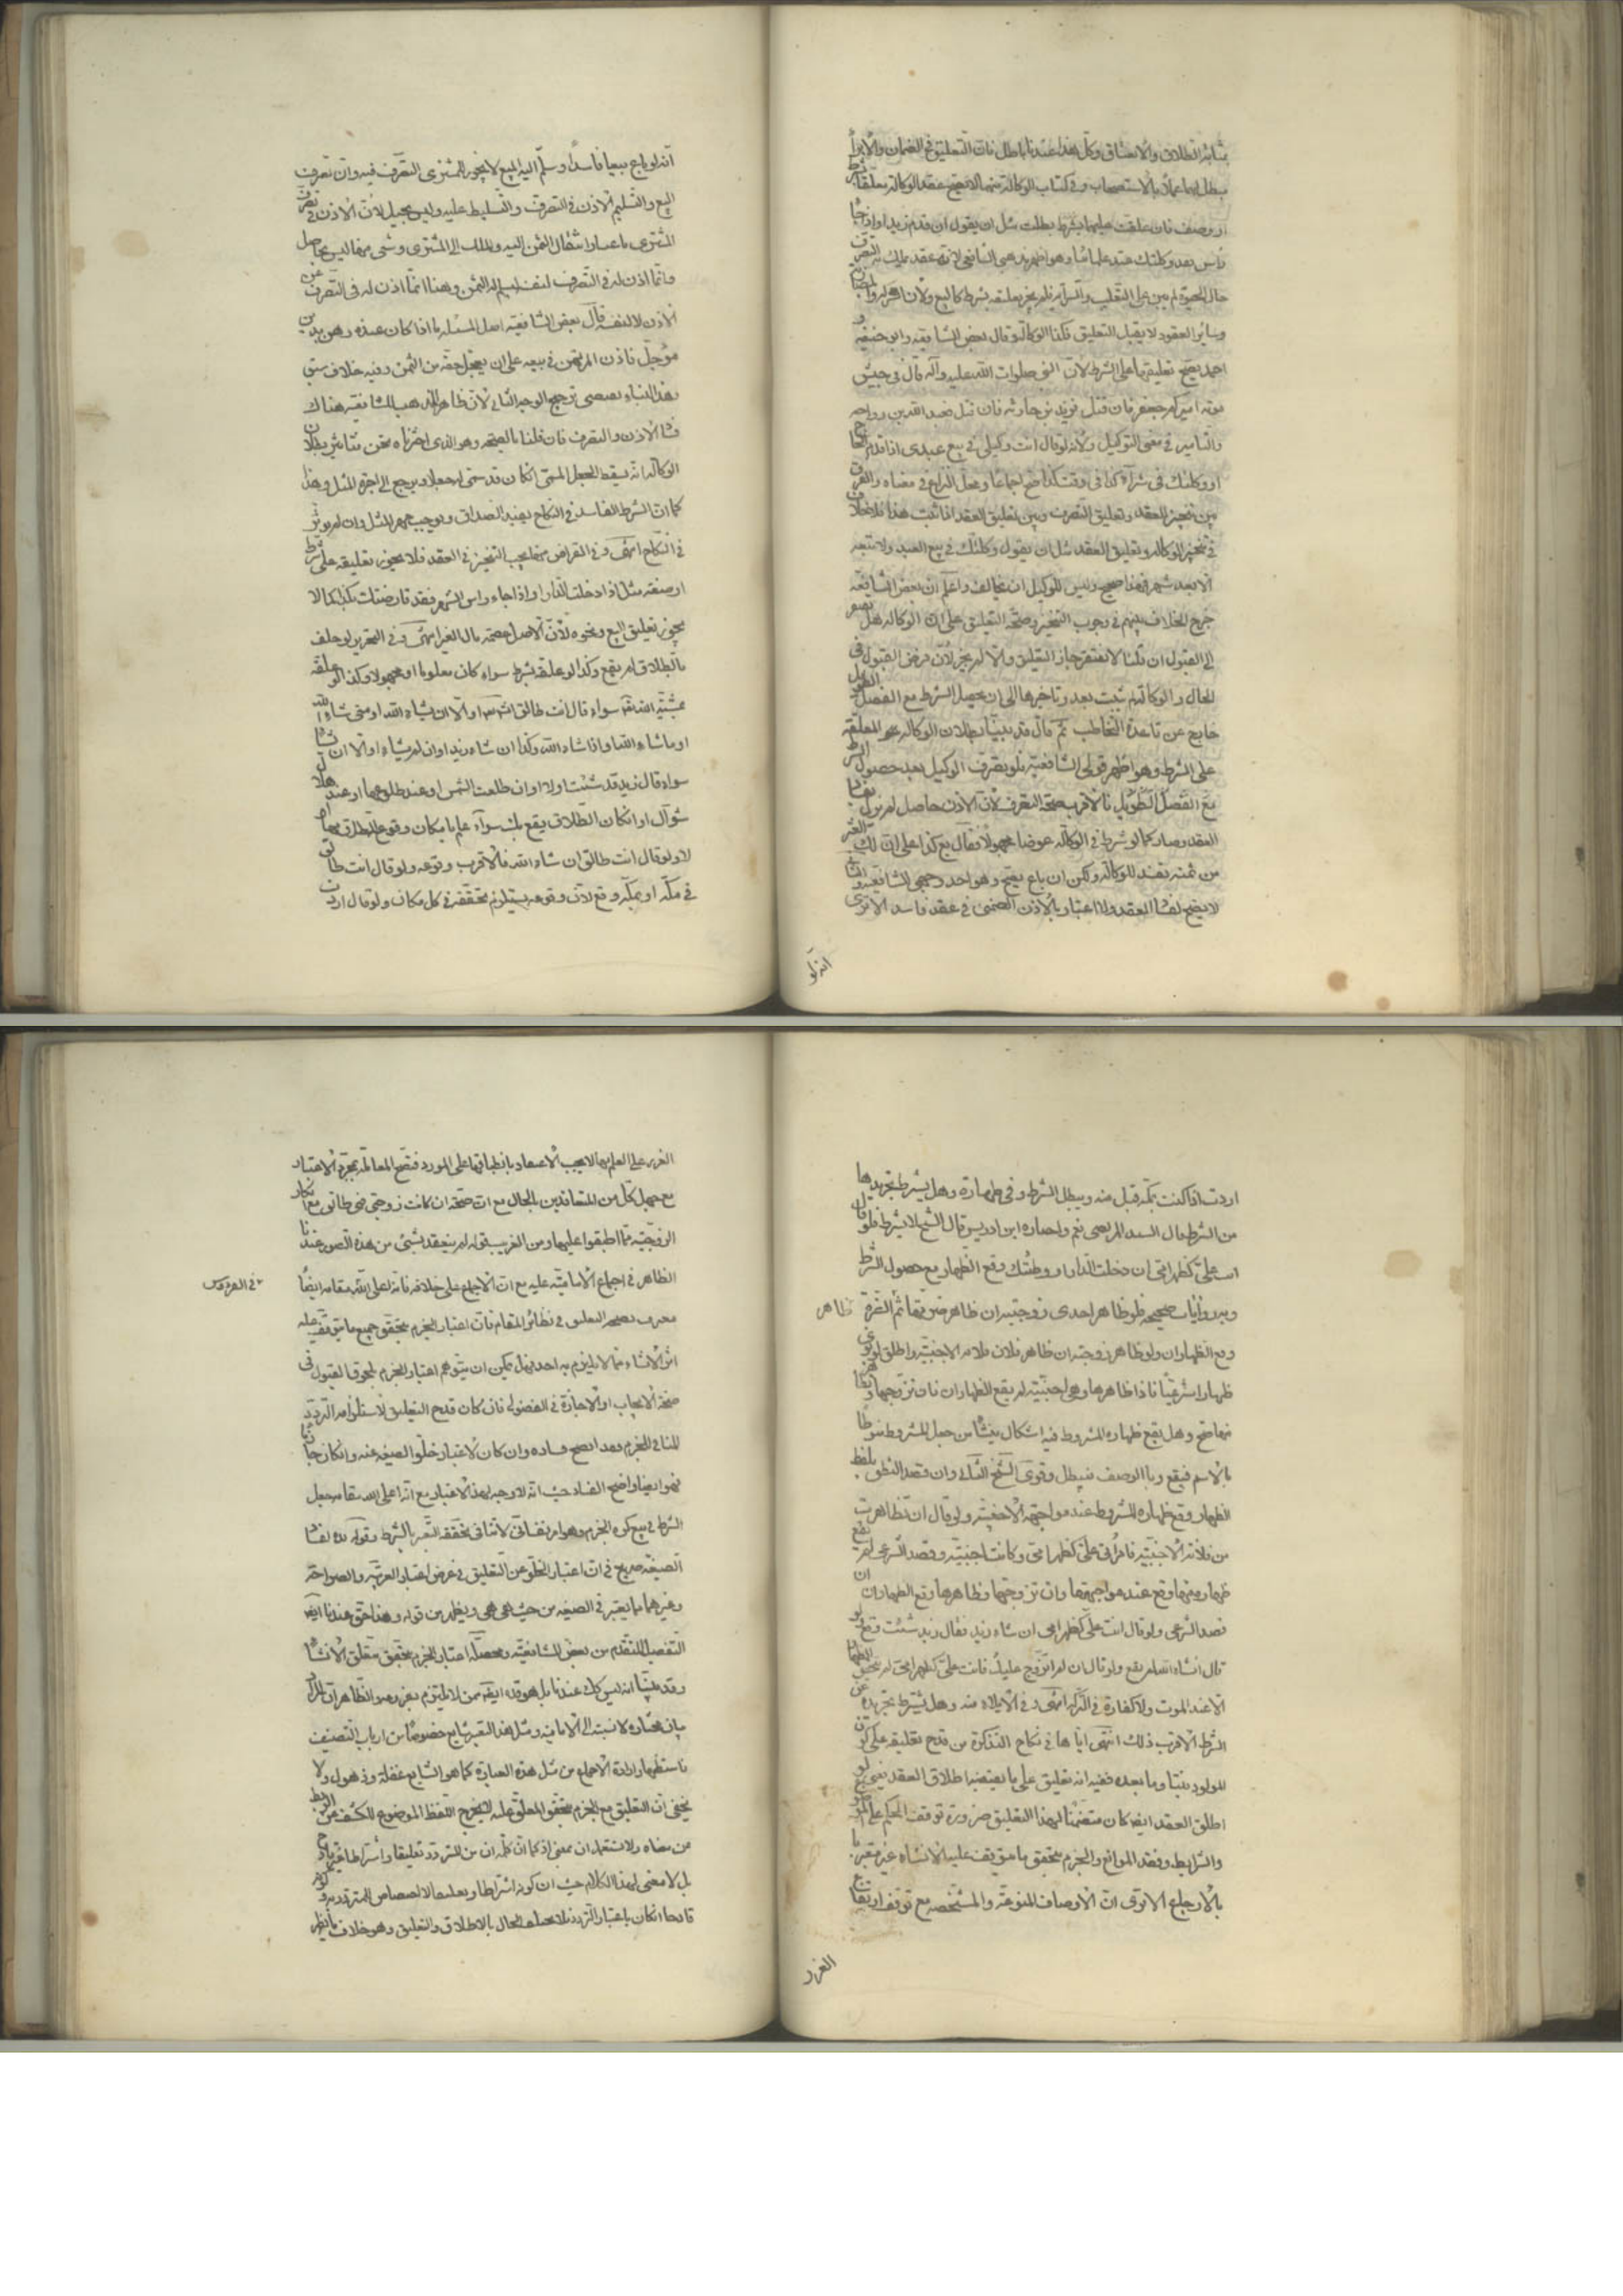 بمثابة الطلاق والاعتاق وكل هذا عندنا باطل فان التعليق في الضمان والابرأ
يبطلهما عملا بالاستصحاب وفي كتاب الوكالة منها لا يصح عقد الوكالة معلقا بشرط
او وصف فان علقت عليهما بشرط بطلت مثل ان يقول ان قدم زيد او اذا جا
راس
وسائر العقود لا يقبل التعليق فكذا الوكالة وقال بعض الشافعية وابو حنيفه و
احمد يصح تعليقها على الشرط لان النبي صلوات الله عليه وآله قال في جيش
موته اميركم جعفر فان قتل فزيد بن حارثه فان قتل فعبد الله بن رواحه
والتامير في معنى التوكيل ولانه لو قال انت وكيلي في بيع عبدى اذا قدم الحاج
او وكلتك في شرآء كذا في وقت كذا صح اجماعا ومحل النزاع في معناه والفرق
بين تنجيز العقد وتعليق التصرف وبين تعليق العقد اذا ثبت هذا فلا خلاف
في تنجيز الوكالة وتعليق العقد مثل ان يقول وكلتك في بيع العبد ولا تبعه
الا بعد شهر فهذا صحيح وليس للوكيل ان يخالف واعلم ان بعض الشافعيه
خرج الخلاف بينهم في وجوب التنجيز وصحة التعليق على ان الوكالة هل تفتقر
الى القبول ان قلنا لا تفتقر جاز التعليق والا لم يجز لان فرض القبول في
الحال والوكالة لم تثبت بعد وتاخيرها الى ان يحصل الشرط مع الفصل الطويل
خارج عن قاعدة التخاطب ثم قال قد بينا بطلان الوكالة المعلقه
على الشرط وهو اظهر قولى الشافعية فلو تصرف الوكيل بعد حصول الشرط
مع الفصل الطويل فالاقرب صحة التصرف لان الاذن حاصل لم يزل بفساد
العقد وصار كما لو شرط في الوكالة عوضا مجهولا فقال بع كذا على ان لك العشر
من ثمنه تفسد الوكالة ولكن ان باع يصح وهو احد وجهى الشافعية والثاني
لا يصح لفساد العقد ولا اعتبار بالاذن الضمنى في عقد فاسد الا ترى
انه لو
انه لو باع بيعا فاسدا وسلم اليه المبيع لا يجوز للمشترى التصرف فيه وان تضمن
البيع والتسليم الاذن في التصرف والتسليط عليه وليس بجيد لان الاذن في تصرف
المشترى باعتبار انتقال الثمن اليه والملك الى المشترى وشى منهما ليس بحاصل
وانما اذن له في التصرف لنفسه ليسلم له الثمن وهنا انما اذن له في التصرف عن
الاذن لا لنفسه قال بعض الشافعية اصل المسئلة ما اذا كان عنده رهن بدين
مؤجل فاذن المرتهن في بيعه على ان يعجل حقه من الثمن وفيه خلاف سبق
وهذا البناء يقتضى ترجيح الوجه الثانى لان ظاهر المذهب للشافعية هناك
فساد الاذن والتصرف فان قلنا بالصحة وهو الذى اخترناه نحن فتأثير بطلان
الوكالة انه يسقط الجعل المسمى ان كان قد سمى له جعلا ويرجع الى اجرة المثل وهذا
كما ان الشرط الفاسد في النكاح يفسد الصداق ويوجب مهر المثل وان لم يوثر
في النكاح انتهى وفي القراض منها يجب التنجيز في العقد فلا يجوز تعليقه على شرط
او صفة مثل اذا دخلت الدار او اذا جاء راس الشهر فقد قارضتك بكذا كما لا
يجوز تعليق البيع ونحوه لان الاصل عصمة مال الغير انتهى وفي التحرير لو حلف
بالطلاق لم يقع وكذا لو علقه بشرط سواء كان معلوما او مجهولا وكذا لو علقه
بمشية الله تعالى سواء قال انت طالق انشاء الله او الا ان يشاء الله او متى شاء الله
او ما شاء الله او اذا شاء الله وكذا ان شاء زيد او ان لم يشاء او الا ان يشا
سواء قال زيد قد شئت او لا او ان طلعت الشمس او عند طلوعها او عند هلال
شوال او ان كان الطلاق يقع بك سوآء علم بامكان وقوع الطلاق بها ام
لا ولو قال انت طالق ان شاء الله فالاقرب وقوعه ولو قال انت طالق
في مكه او بمكه وقع لان وقوعه يستلزم تحققه في كل مكان ولو قال اردت
اردت اذا كنت بمكه قبل منه ويبطل الشرط وفي ظهاره وهل يشترط تجريدها
من الشرط قال السيد المرتضى نعم واختاره ابن ادريس قال الشيخ لا يشترط فلو قال
انت على كظهر امى ان دخلت الدار او وطئتك وقع الظهار مع حصول الشرط
وبه روايات صحيحه فلو ظاهر احدى زوجتيه ان ظاهر ضرتها ثم ظاهر الضرة
وقع الظهاران ولو ظاهر زوجته ان ظاهر فلانه الاجنبية واطلق لو نوى
ظهارا شرعيا فاذا ظاهرها وهى اجنبية لم يقع الظهاران فان تزوجها وظاهر
منها صح وهل يقع ظهاره المشروط فيه اشكال ينشا من جعل المشروط منوطا
بالاسم فيقع وبا الوصف فيبطل وقوى الشيخ الثانى وان قصد النطق بلفظ
الظهار وقع ظهاره المشروط عند مواجهة الاجنبية ولو قال ان تظاهرت
من فلانة الاجنبية فامرأتى على كظهر امى وكانت اجنبية وقصد الشرعى لم يقع
ظهار وقع عند مواجهتها وان تزوجها وظاهرها وقع الظهاران ان
قصد الشرعى ولو قال انت على كظهر امى ان شاء زيد فقال زيد شئت وقع ولو
قال انشاء الله لم يقع ولو قال ان لم اتزوج عليك فانت على كظهر امى لم يتحقق الظهار
الا عند الموت ولا كفارة في التركة انتهى وفي الايلاء منه وهل يشترط تجريده عن
الشرط الاقرب ذلك انتهى اما ما في نكاح التذكرة من قدح تعليقه على كون
المولود بنتا وما بعده ففيه انه تعليق على ما يقتضيه اطلاق العقد يعنى لو
اطلق العقد ايضا كان متضمنا لهذا التعليق ضرورة توقف الحكم على الموضوع
والشرايط وفقد الموانع والجزم بتحقق ما يتوقف عليه الانشاء غير معتبر
بالاجماع الا ترى ان الاوصاف المنوعة والمشخصه مع توقف ارتفاع
الغرر
الغرر على العلم بها لا يجب الاعتقاد بانطباقها على المورد فتصح المعاملة بمجرد الاعتبار
مع جهل كل من المتعاقدين بالحال مع ان صحة ان كانت زوجتى فهى طالق مع انكار
الزوجية مما اطبقوا عليها ومن الغريب قوله لم ينعقد بشئ من هذه الصور عندنا
الظاهر في اجماع الامامية عليه مع ان الاجماع على خلافه فانه اعلى الله مقامه ايضا
في الفردوس
معترف بصحة التعليق في نظائر المقام فان اعتبار الجزم بتحقق جميع ما يتوقف عليه
اثر الانشاء مما لا يلتزم به احد فهل يمكن ان يتوهم اعتبار الجزم بلحوق القبول في
صحة الايجاب او الاجازة في الفضولى فان كان قدح التعليق لاستلزامه التردد
المنافى للجزم فقد اتضح فساده وان كان لاعتبار خلو الصيغه عنه وان كان جازما
فهو ايضا واضح الفساد حيث انه لا وجه لهذا الاعتبار مع انه اعلى الله مقامه جعل
الصيغة صريح في ان اعتبار الخلو عن التعليق في عرض اعتبار العربية والصراحة
وغيرهما مما يعتبر في الصيغه من حيث هى هى ويظهر من قوله وهذا حق عندنا ايضا
التفصيل المتقدم من بعض الشافعية ومحصله اعتبار الجزم بتحقق معلق الانشاء
وقد بينا انه ليس كك عندنا بل هو قده ايضا ممن لا يلتزم
بان مختاره لا نسبته الى الامامية ومثل هذا التعبير شايع خصوصا من ارباب التصنيف
فاستظهار ارادة الاجماع من مثل هذه العبارة كما هو الشايع غفلة وذهول ولا
يخفى ان التعليق مع الجزم بتحقق المعلق عليه لا يخرج اللفظ الموضوع للكشف عن الربط
من معناه ولا يستعمل ان بمعنى اذ كما ان كلمة ان من المتردد تعليقا واشتراطا
بل لا معنى لهذا الكلام حيث ان كونه اشتراطا وتعليقا لا اختصاص له بالمتردد
قادحا ان كان باعتبار التردد فلا يختلف الحال بالاطلاق والتعليق وهو خلاف ما يظهر